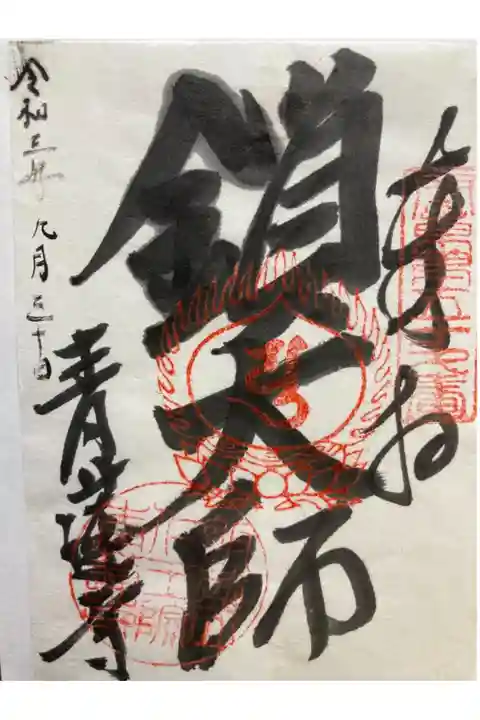 奉拝
鎖大師
令和三年 九月三十日
青蓮寺